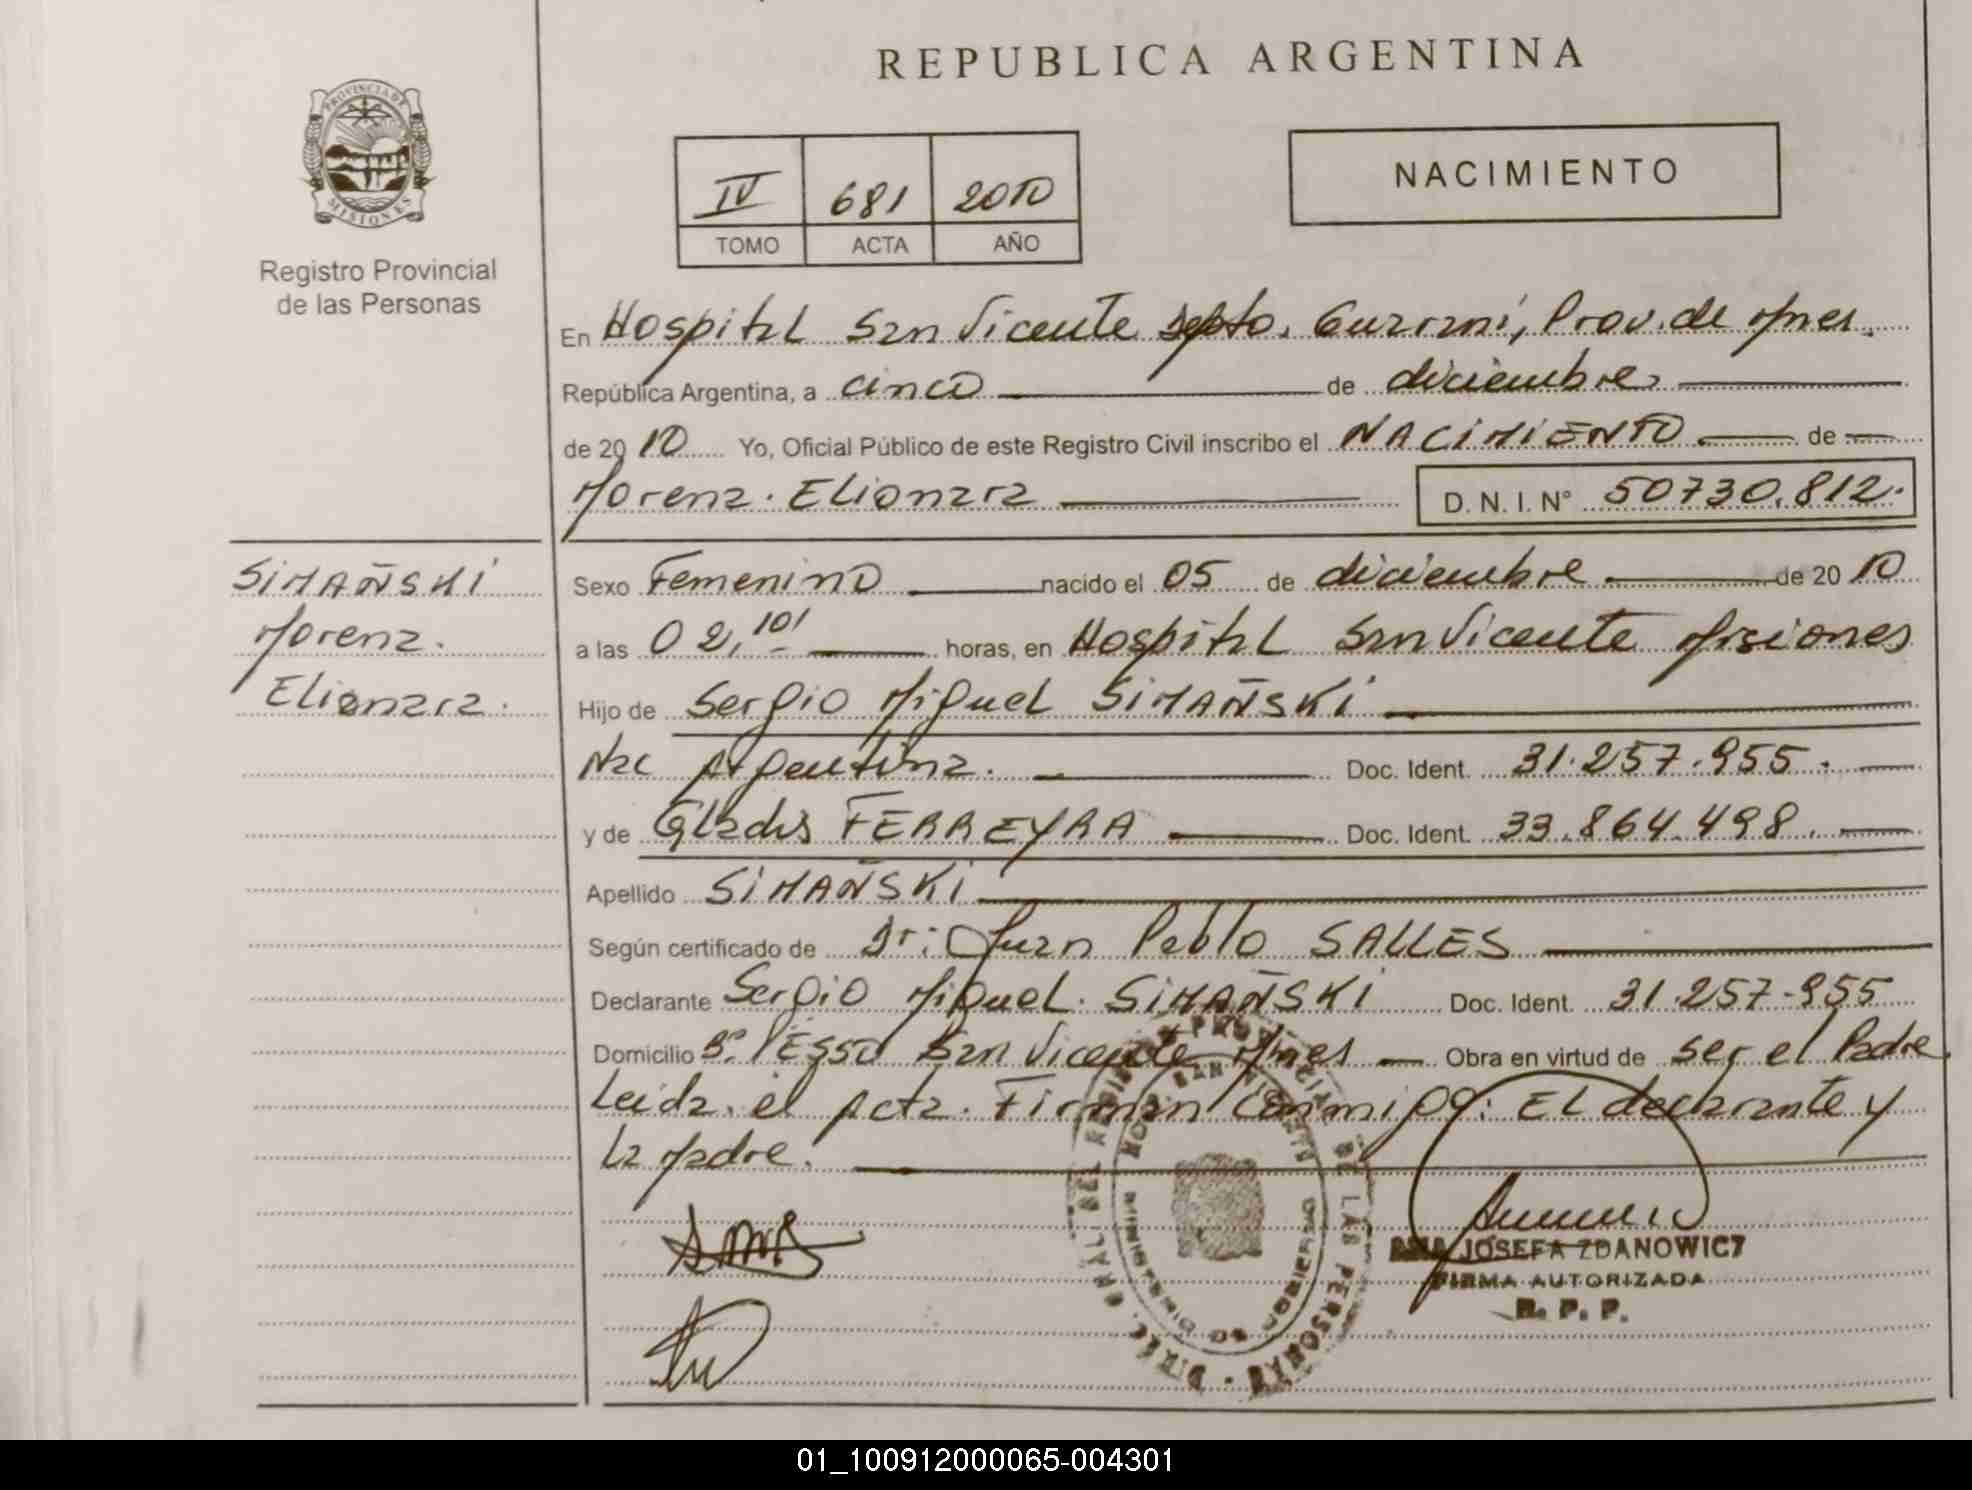 REPUBLICA ARGENTINA
PROVINCIA DE
MISIONES
Registro Provincial
de las Personas
IV 681 2010
TOMO ACTA AÑO
NACIMIENTO
En Hospital San Vicente Depto. Guarani, Prov. de Mnes.
República Argentina, a cinco de diciembre
de 2010 Yo, Oficial Público de este Registro Civil inscribo el NACIMIENTO de
Morena. Elionara D. N. I. N° 50730.812.
SIMAÑSKI
Morena.
Elionara.
Sexo Femenino nacido el 05 de diciembre de 2010
a las 02,10' horas, en Hospital San Vicente Misiones
Hijo de Sergio Miguel SIMAÑSKI
Nac Argentina. Doc. Ident. 31.257.955.
y de Gladis FERREYRA Doc. Ident. 33.864.498.
Apellido SIMAÑSKI
Según certificado de Dr: Juan Pablo SALLES
Declarante Sergio Miguel. SIMAÑSKI Doc. Ident. 31.257.955
Domicilio Bº San Vicente Mnes Obra en virtud de ser el Padre.
Leida el acta. Firman conmigo: El declarante y
la Madre.
JOSEFA ZDANOWICZ
FIRMA AUTORIZADA
R. P. P.
DE LAS PERSONAS
01_100912000065-004301